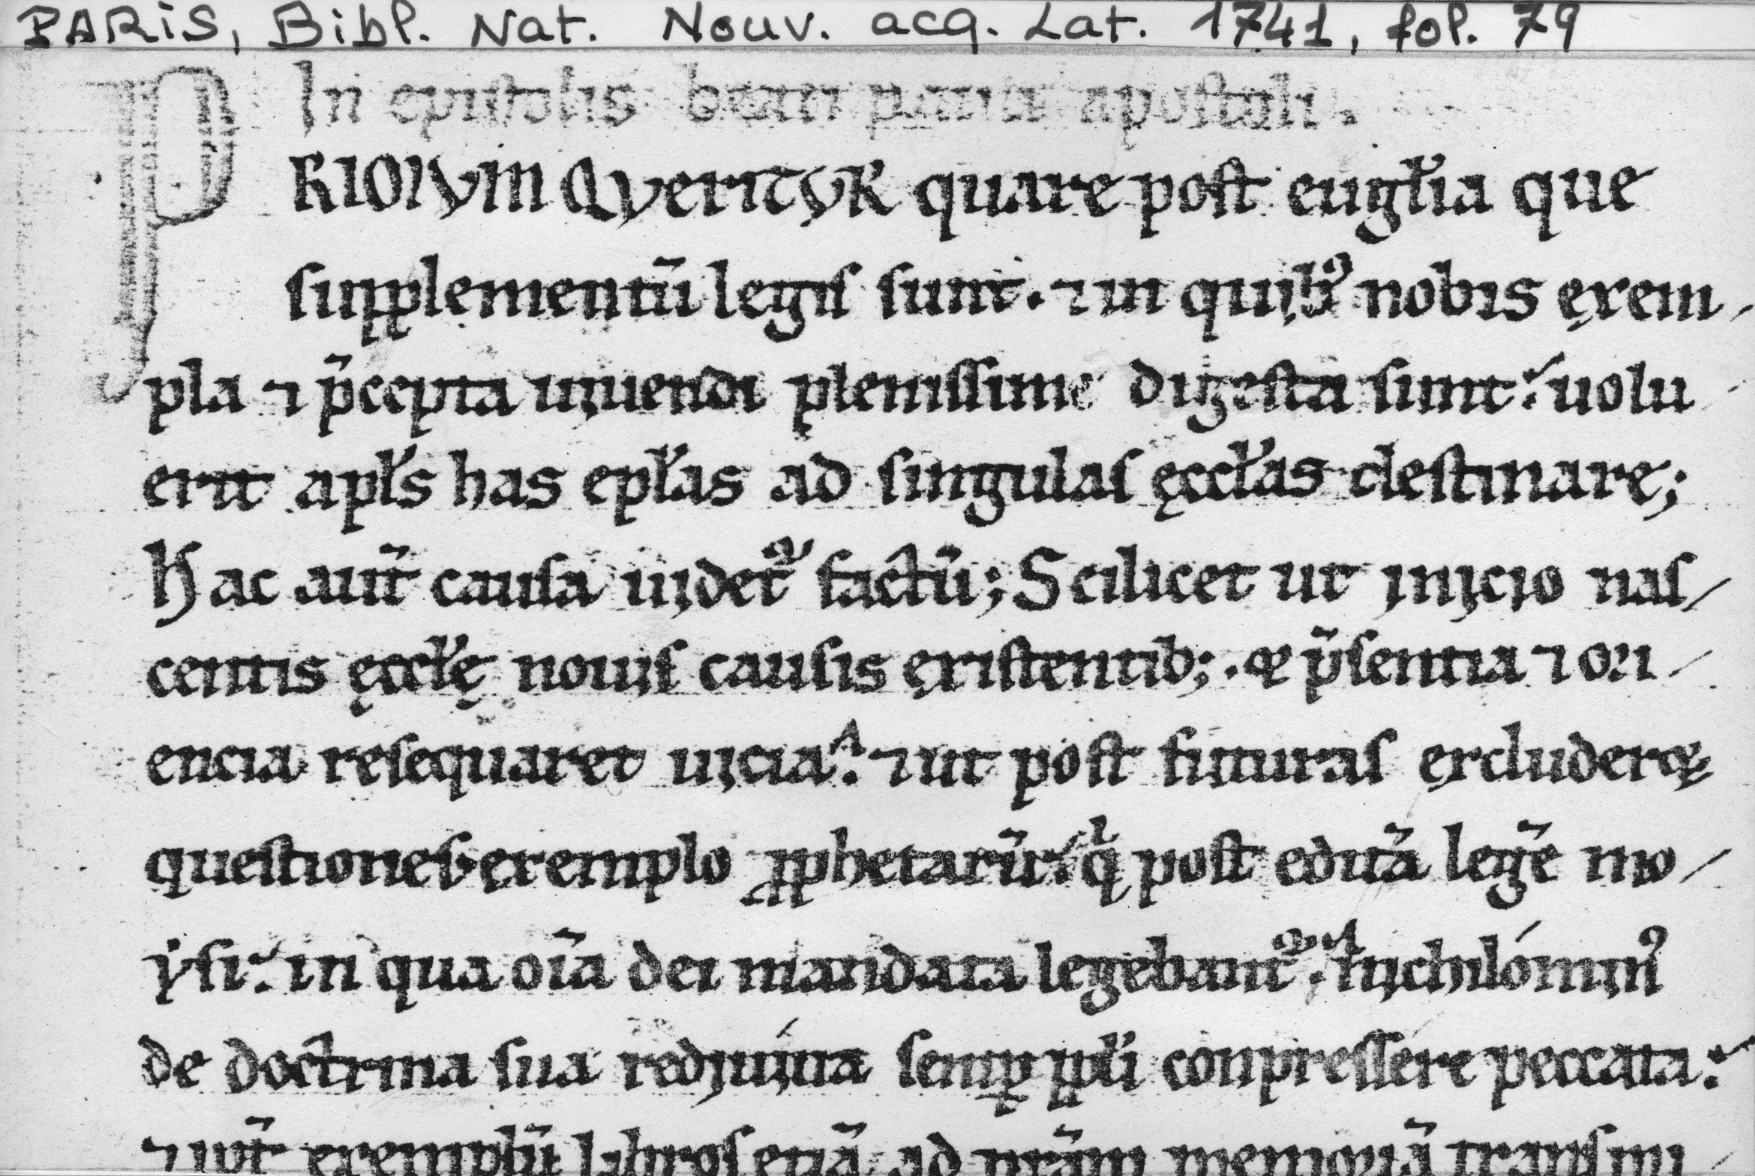 PARIS, Bibl. Nat. Nouv. acq. Lat. 1741, fol. 79
In epistolis beati pauli apostoli.
PRIMVM QVERITVR quare post eugl̃ia que
supplementũ legis sunt. ⁊ in quibꝰ nobis exem-
pla ⁊ p̃cepta uiuendi plenissime digesta sunt. uolu
erit apl̃s has epl̃as ad singulas ęccl̃as destinare;
Hac aut̃ causa uidet᷑ factũ; Scilicet ut inicio nas-
centis ęccl̃ę nouis causis existentib; et p̃sentia ⁊ ori-
encia resequaret uicia. ⁊ ut post futuras excluderet
questiones exemplo ꝓphetarũ. qͥ post editã legẽ mo-
ẏsi. in qua oĩa dei mandata legebant᷑. nichilóminꝰ
de doctrina sua rediuiua semꝑ ppl̃i conpressere peccata.
⁊ ꝓpt̃ exemplũ libros etiã ad nr̃am memoriã transmi-